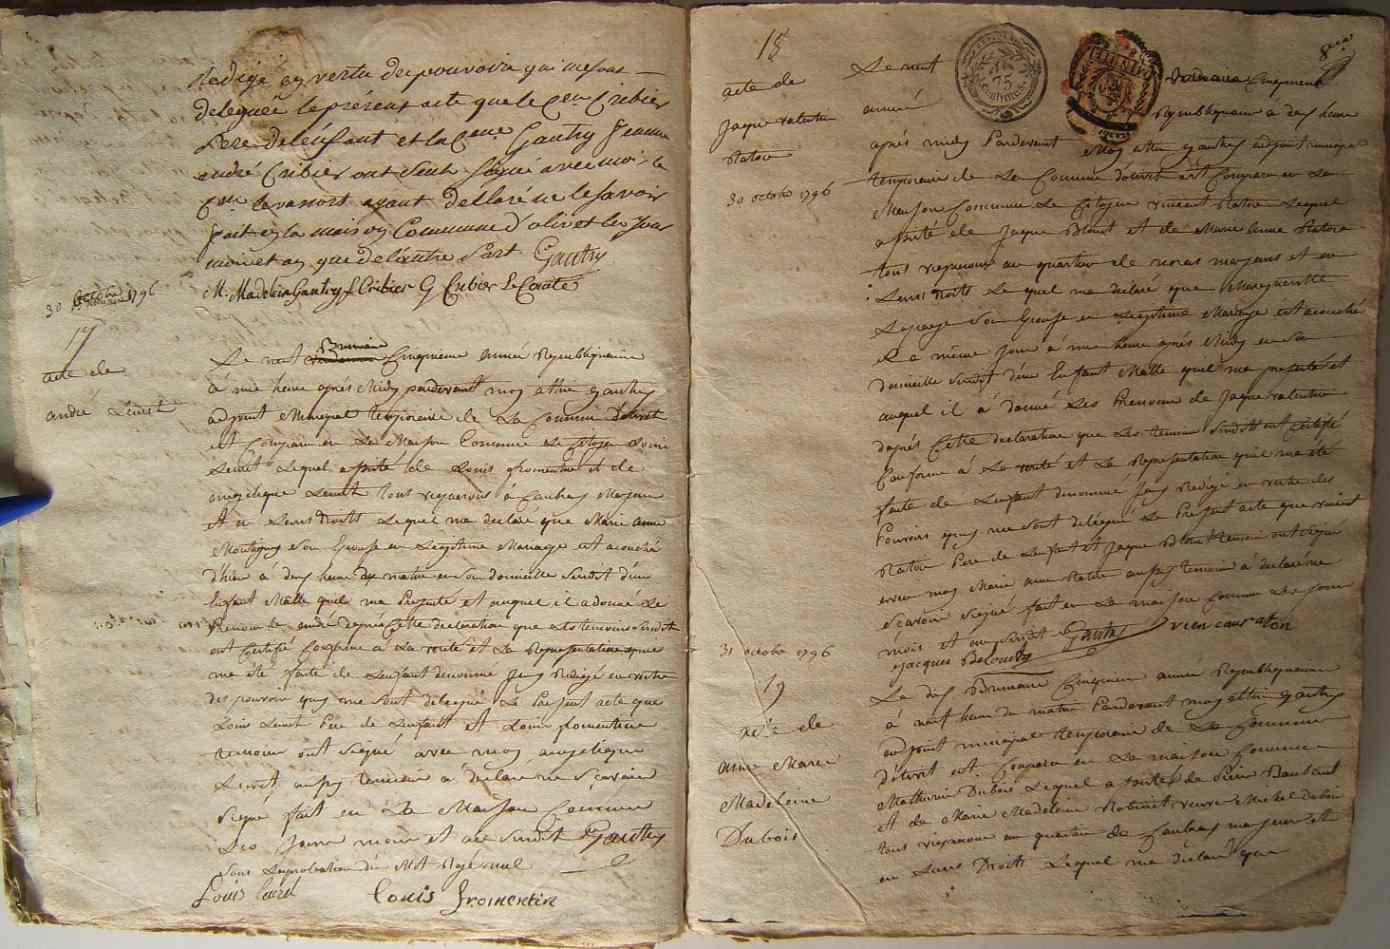 Redigé en vertu des pouvoirs qui me sont
delegués le présent acte que le Cen Cribier
Pere de l'enfant et la Cenne Gautry femme
andré Cribier ont seuls signé avec moi la
Cenne levassort ayant déclaré ne le savoir
fait en la maison Commune d'olivet les jour
mois et an que de l'autre Part Gautry
M. Madelein Gautry f Cribier G Cribier Le Comte
30 octobre 1796
17
acte de
andré Lluet
Le neuf Brumaire Cinquieme année Republiquaine
à une heure après Midy pardevant moy attin gautry
adjoint Municipal temporaire de La Commune dólivet
est Comparu en La Maison Commune Le Citoyen Louis
Lequel assisté de Louis fromentin et de
angelique tous vigneron à Caubray Majeurs
et en Leurs Droits Lequel ma declaré que Marie anne
Montigny Son Epouse en Legitime Mariage est acouché
d'hier à deux heure de matin en Son domicille Susdit d'un
Enfant Malle quil ma Presenté et auquel il a donné Le
Prenom de andé daprès Cette declaration que Les temoins Susdit
ont Certifié Conforme à La verité et La Representation que
ma été faite de Lenfant denommé Jay Redigé en vertu
des pouvoir quy me Sont delegué Le Present acte que
Louis Pere de Lenfant et Louis fromentin
temoin ont Signé avec moy angelique
aussy temoin a declaré ne Scavoir
Signé fait en La Maison Commune
Les Jour mois et an Susdit Gautry
Sans approbation du Mot Rayé nul
Louis Louis fromentin
18
acte de
Jaque valentin
Ratoré
30 octobre 1796
8
Le neuf Brumaire Cinquieme
année Republiquaine à deux heure
après midy Pardevant Moy attin gautry adjoint municipal
temporaire de La Commune dólivet est Comparu en La
Maison Commune Le Citoyen vincent Ratoré Lequel
assisté de Jaque Blouet et de Marie anne Ratoré
tous vigneron au quartier de majeurs et en
Leurs Droits Lequel ma declaré que Margueritte
Son Epouse en Legitime Mariage est acouché
Le même Jour à une heure après Midy en Son
domicille Susdit d'un Enfant Malle quil ma presenté et
auquel il à donné Les Prenoms de Jaque valentin
daprés Cette declaration que Les temoin Susdit ont Certifié
Conforme à La verité et La Representation quil ma été
faite de Lenfant denommé Jay Redigé en vertu des
Pouvoirs quy me Sont delegué Le Present acte que vincent
Ratoré Pere de Lenfant et Jaque temoin ont Signé
avec moy Marie anne Ratoré aussy temoin à declaré ne
Scavoir Signé fait en La maison Commune Les Jour
mois et an Susdit Gautry vincent raton
Jacques
31 octobre 1796
19
acte de
anne Marie
Madeleine
Dubois
Le dix Brumaire Cinquieme année Republiquaine
à neuf heure du matin Pardevant moy attin gautry
adjoint municipal temporaire de La Commune
dólivet est Comparu en La maison Commune
Mathurin Dubois Lequel assisté de
et de Marie Madeleine Robinet veuve Michel dubois
tous vigneron au quartier de Caubray majeurs et
en Leurs Droits Lequel ma declaré que